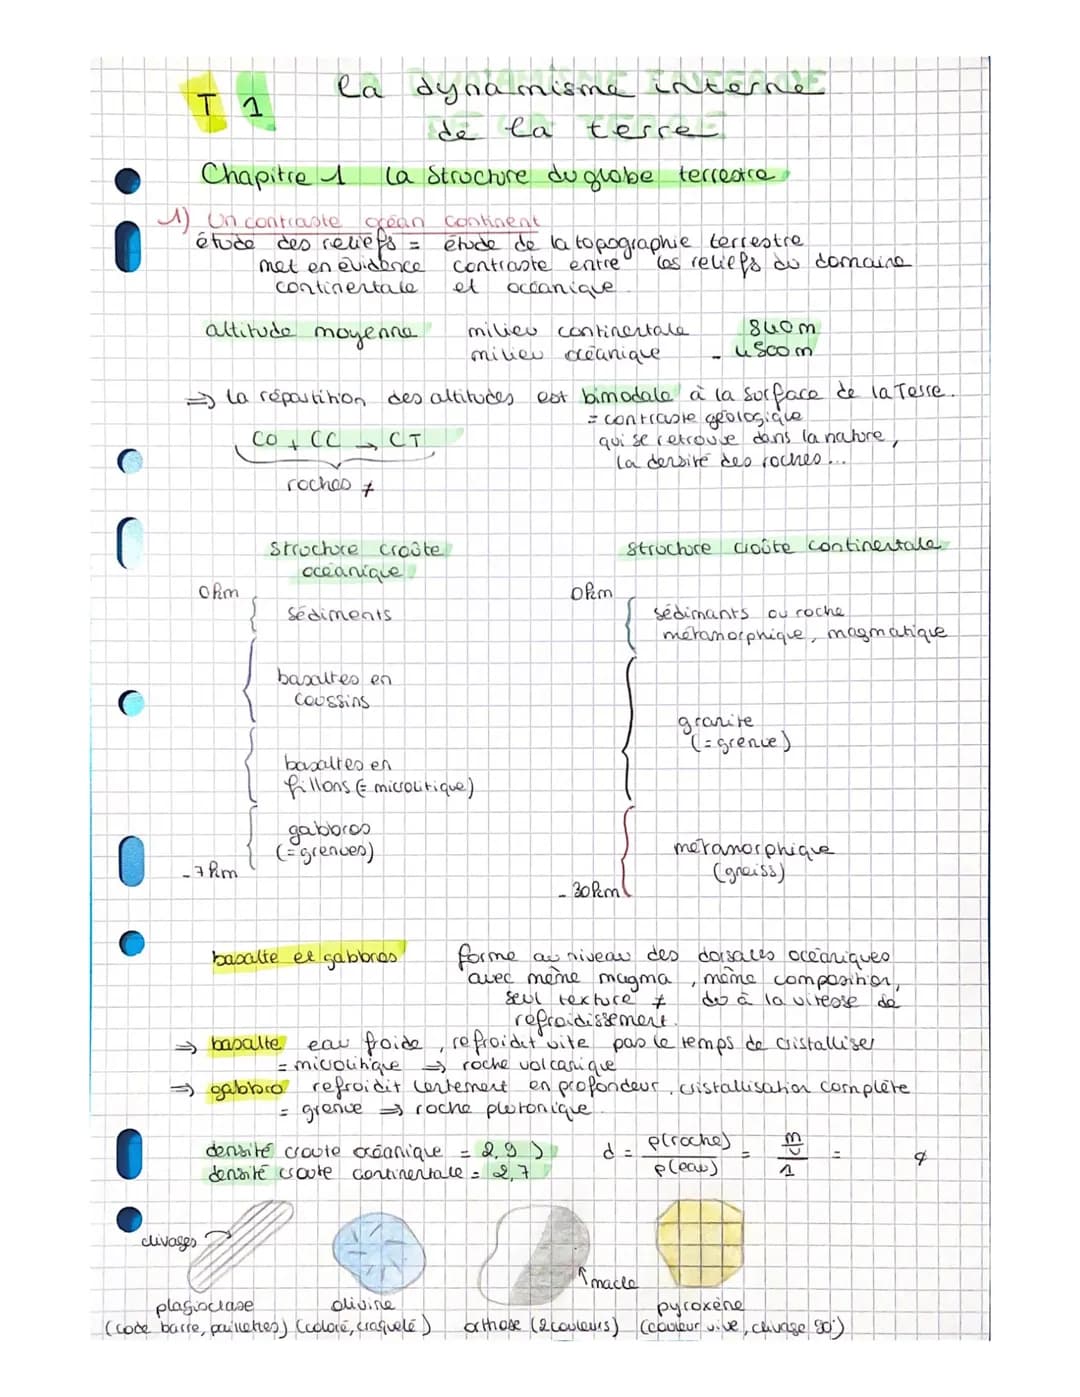 T 1
la dynamisme interne
de la terre
Chapitre 1 la Structure du globe terrestre
1) Un contraste océan continent
étude des reliefs = étude de la topographie terrestre
met en évidence contraste entre les reliefs du domaine
continentale et océanique.
altitude moyenne milieu continentale 840m
milieu océanique - 4500m
⇒ la répartition des altitudes est bimodale à la surface de la Terre.
= contraste géologique
qui se retrouve dans la nature,
la densité des roches...
CO + CC → CT
roches ≠
Structure croûte
océanique
0km
sédiments
basaltes en
coussins
basaltes en
fillons (= microlitique)
gabbros
(= grenues)
- 7km
structure croûte continentale
0km
sédimants ou roche
métamorphique, magmatique
granite
(= grenue)
métamorphique
(gneiss)
- 30km
basalte et gabbros forme au niveau des dorsales océaniques
avec même magma, même composition,
seul texture ≠ du à la vitesse de
refroidissement.
⇒ basalte eau froide, refroidit vite pas le temps de cristalliser
= microlitique ⇒ roche volcanique
⇒ gabbro refroidit lentement en profondeur, cristallisation complète
= grenue ⇒ roche plutonique.
densité croute océanique = 2,9
densité croute continentale = 2,7
d = ρ(roche) / ρ(eau) = m/v / 1 =
clivages
macle
plagioclase
(code barre, paillettes)
olivine
(coloré, craquelé)
orthose (2 couleurs)
pyroxène
(couleur vive, clivage 90°)